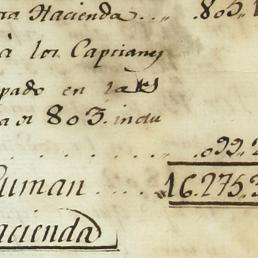 Hacienda . . 803,1
à los Capitanes
pado en las
803. inclu
. . . . . . . 092.2
Suman . . . . 16.275.3
Hacienda